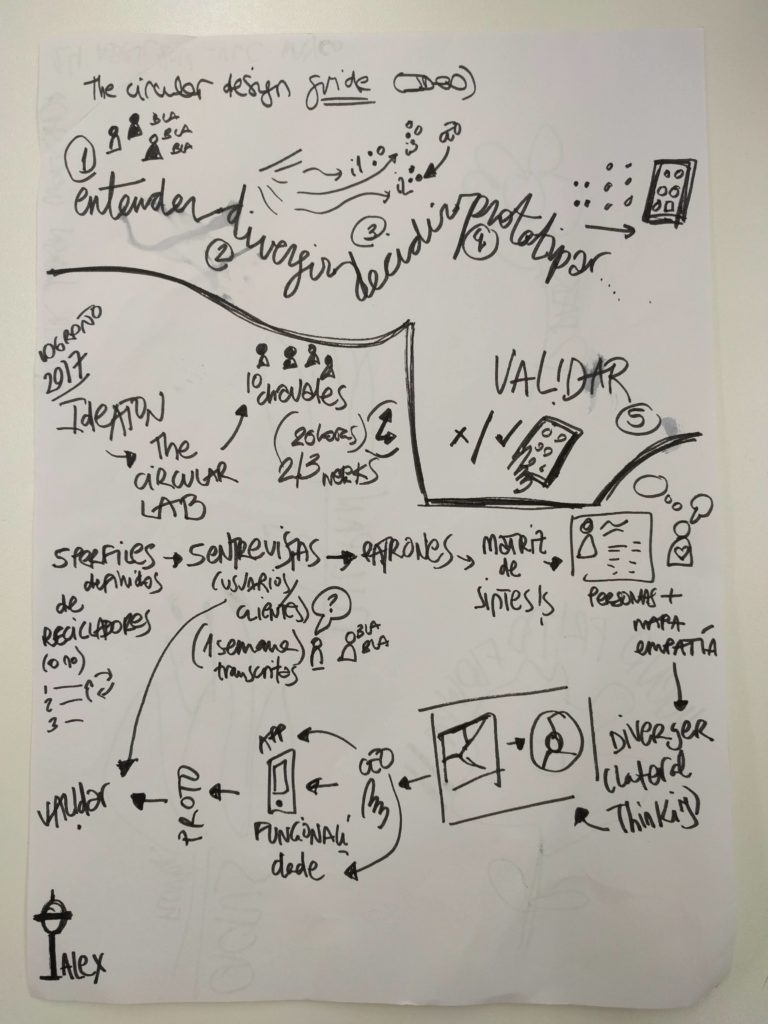 The circular design guide (IDEO)
1
BLA
BLA
BLA
i1
i3
i2
entender divergir decidir prototipar
2
3
4
LOGROÑO
2017
IdeATON
The
CIRCULAR
LAB
10 chavales
(20 LOKERS)
2/3 WEEKS
VALIDAR
5
x/✓
5 PERFILES
definidos
de
RECICLADORES
(o no)
1
2
3
5 ENTREVISTAS
(USUARIOS/
CLIENTES)
?
(1 semana)
transcritos
BLA
BLA
PATRONES
MATRIZ
de
SÍNTESIS
PERSONAS +
MAPA
EMPATÍA
DIVERGER
(lateral
Thinking)
APP
FUNCIONALI
dade
PROTO
VALIDAR
ALEX